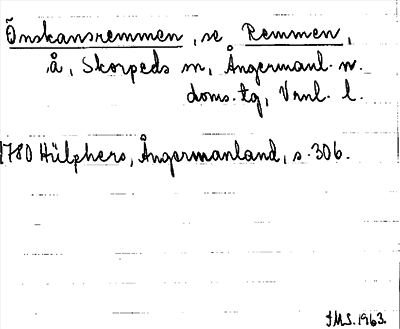 Önskansremmen, se Remmen,
å, Skorpeds sn, Ångermanl. n.
doms. tg, Vrnl. l.
1780 Hülphers, Ångermanland, s. 306.
IMS. 1963.